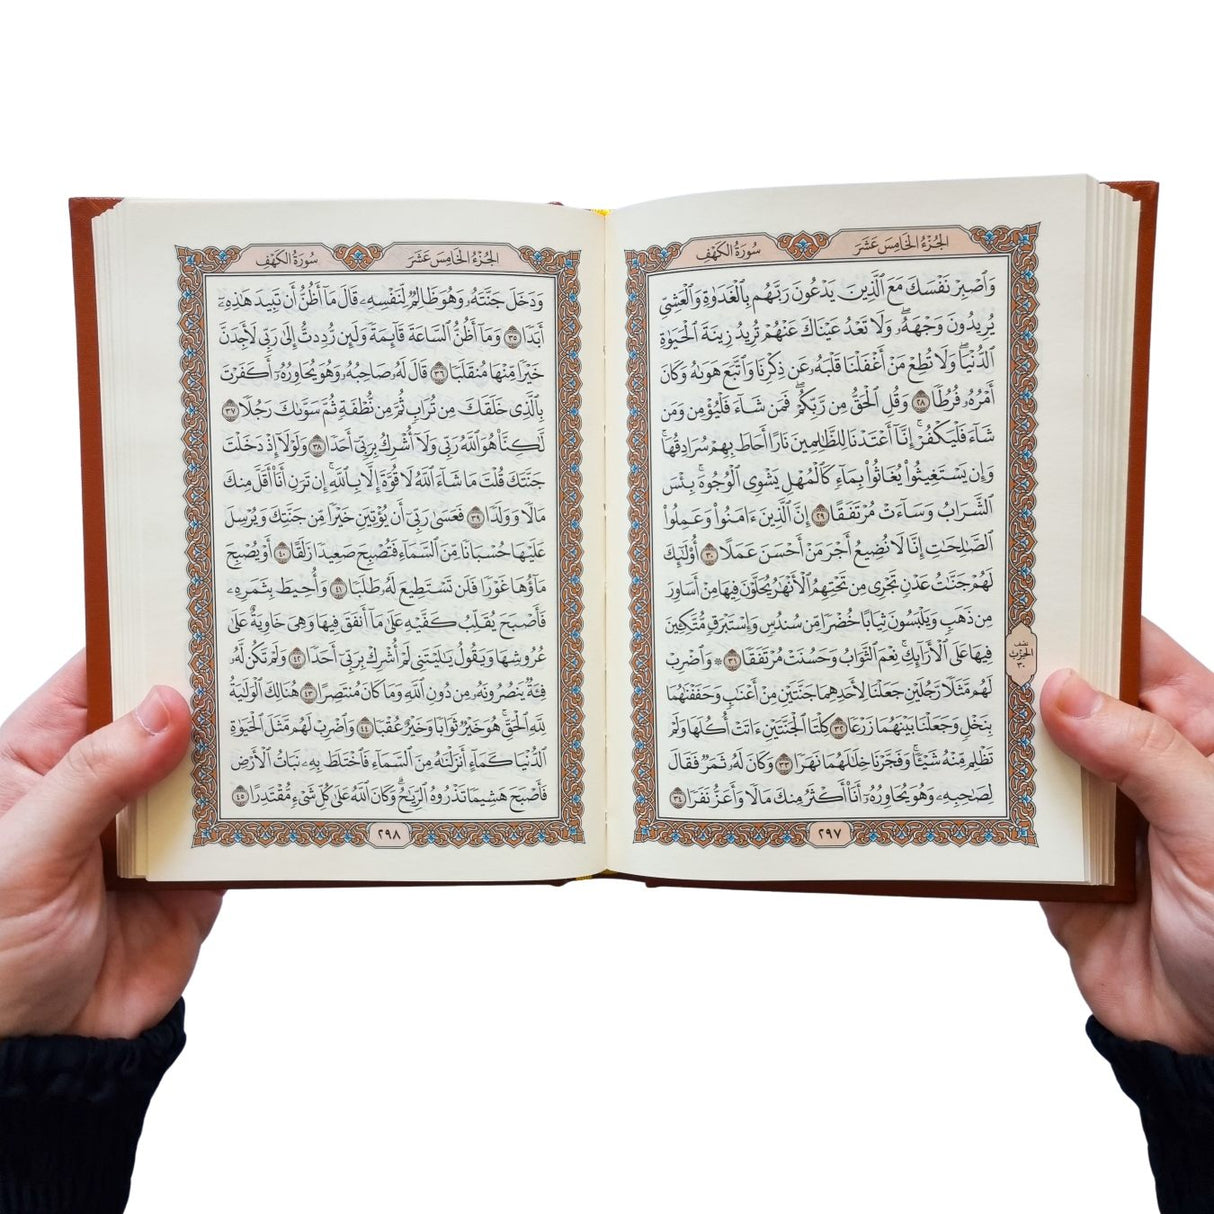 الجُزْءُ الخَامِسَ عَشَرَ
سُورَةُ الكَهْفِ
وَٱصْبِرْ نَفْسَكَ مَعَ ٱلَّذِينَ يَدْعُونَ رَبَّهُم بِٱلْغَدَوٰةِ وَٱلْعَشِىِّ
يُرِيدُونَ وَجْهَهُۥۖ وَلَا تَعْدُ عَيْنَاكَ عَنْهُمْ تُرِيدُ زِينَةَ ٱلْحَيَوٰةِ
ٱلدُّنْيَاۖ وَلَا تُطِعْ مَنْ أَغْفَلْنَا قَلْبَهُۥ عَن ذِكْرِنَا وَٱتَّبَعَ هَوَىٰهُ وَكَانَ
أَمْرُهُۥ فُرُطًا ٢٨ وَقُلِ ٱلْحَقُّ مِن رَّبِّكُمْۖ فَمَن شَآءَ فَلْيُؤْمِن وَمَن
شَآءَ فَلْيَكْفُرْۚ إِنَّآ أَعْتَدْنَا لِلظَّٰلِمِينَ نَارًا أَحَاطَ بِهِمْ سُرَادِقُهَاۚ
وَإِن يَسْتَغِيثُوا۟ يُغَاثُوا۟ بِمَآءٍ كَٱلْمُهْلِ يَشْوِى ٱلْوُجُوهَۚ بِئْسَ
ٱلشَّرَابُ وَسَآءَتْ مُرْتَفَقًا ٢٩ إِنَّ ٱلَّذِينَ ءَامَنُوا۟ وَعَمِلُوا۟
ٱلصَّٰلِحَٰتِ إِنَّا لَا نُضِيعُ أَجْرَ مَنْ أَحْسَنَ عَمَلًا ٣٠ أُو۟لَٰٓئِكَ
لَهُمْ جَنَّٰتُ عَدْنٍ تَجْرِى مِن تَحْتِهِمُ ٱلْأَنْهَٰرُ يُحَلَّوْنَ فِيهَا مِنْ أَسَاوِرَ
مِن ذَهَبٍ وَيَلْبَسُونَ ثِيَابًا خُضْرًا مِّن سُندُسٍ وَإِسْتَبْرَقٍ مُّتَّكِـِٔينَ
فِيهَا عَلَى ٱلْأَرَآئِكِۚ نِعْمَ ٱلثَّوَابُ وَحَسُنَتْ مُرْتَفَقًا ٣١ ۞ وَٱضْرِبْ
لَهُم مَّثَلًا رَّجُلَيْنِ جَعَلْنَا لِأَحَدِهِمَا جَنَّتَيْنِ مِنْ أَعْنَٰبٍ وَحَفَفْنَٰهُمَا
بِنَخْلٍ وَجَعَلْنَا بَيْنَهُمَا زَرْعًا ٣٢ كِلْتَا ٱلْجَنَّتَيْنِ ءَاتَتْ أُكُلَهَا وَلَمْ
تَظْلِم مِّنْهُ شَيْـًٔاۚ وَفَجَّرْنَا خِلَٰلَهُمَا نَهَرًا ٣٣ وَكَانَ لَهُۥ ثَمَرٌ فَقَالَ
لِصَٰحِبِهِۦ وَهُوَ يُحَاوِرُهُۥٓ أَنَا۠ أَكْثَرُ مِنكَ مَالًا وَأَعَزُّ نَفَرًا ٣٤
نصف
الحزب
٣٠
٢٩٧
الجُزْءُ الخَامِسَ عَشَرَ
سُورَةُ الكَهْفِ
وَدَخَلَ جَنَّتَهُۥ وَهُوَ ظَالِمٌ لِّنَفْسِهِۦ قَالَ مَآ أَظُنُّ أَن تَبِيدَ هَٰذِهِۦٓ
أَبَدًا ٣٥ وَمَآ أَظُنُّ ٱلسَّاعَةَ قَآئِمَةً وَلَئِن رُّدِدتُّ إِلَىٰ رَبِّى لَأَجِدَنَّ
خَيْرًا مِّنْهَا مُنقَلَبًا ٣٦ قَالَ لَهُۥ صَاحِبُهُۥ وَهُوَ يُحَاوِرُهُۥٓ أَكَفَرْتَ
بِٱلَّذِى خَلَقَكَ مِن تُرَابٍ ثُمَّ مِن نُّطْفَةٍ ثُمَّ سَوَّىٰكَ رَجُلًا ٣٧
لَّٰكِنَّا۠ هُوَ ٱللَّهُ رَبِّى وَلَآ أُشْرِكُ بِرَبِّىٓ أَحَدًا ٣٨ وَلَوْلَآ إِذْ دَخَلْتَ
جَنَّتَكَ قُلْتَ مَا شَآءَ ٱللَّهُ لَا قُوَّةَ إِلَّا بِٱللَّهِۚ إِن تَرَنِ أَنَا۠ أَقَلَّ مِنكَ
مَالًا وَوَلَدًا ٣٩ فَعَسَىٰ رَبِّىٓ أَن يُؤْتِيَنِ خَيْرًا مِّن جَنَّتِكَ وَيُرْسِلَ
عَلَيْهَا حُسْبَانًا مِّنَ ٱلسَّمَآءِ فَتُصْبِحَ صَعِيدًا زَلَقًا ٤٠ أَوْ يُصْبِحَ
مَآؤُهَا غَوْرًا فَلَن تَسْتَطِيعَ لَهُۥ طَلَبًا ٤١ وَأُحِيطَ بِثَمَرِهِۦ
فَأَصْبَحَ يُقَلِّبُ كَفَّيْهِ عَلَىٰ مَآ أَنفَقَ فِيهَا وَهِىَ خَاوِيَةٌ عَلَىٰ
عُرُوشِهَا وَيَقُولُ يَٰلَيْتَنِى لَمْ أُشْرِكْ بِرَبِّىٓ أَحَدًا ٤٢ وَلَمْ تَكُن لَّهُۥ
فِئَةٌ يَنصُرُونَهُۥ مِن دُونِ ٱللَّهِ وَمَا كَانَ مُنتَصِرًا ٤٣ هُنَالِكَ ٱلْوَلَٰيَةُ
لِلَّهِ ٱلْحَقِّۚ هُوَ خَيْرٌ ثَوَابًا وَخَيْرٌ عُقْبًا ٤٤ وَٱضْرِبْ لَهُم مَّثَلَ ٱلْحَيَوٰةِ
ٱلدُّنْيَا كَمَآءٍ أَنزَلْنَٰهُ مِنَ ٱلسَّمَآءِ فَٱخْتَلَطَ بِهِۦ نَبَاتُ ٱلْأَرْضِ
فَأَصْبَحَ هَشِيمًا تَذْرُوهُ ٱلرِّيَٰحُۗ وَكَانَ ٱللَّهُ عَلَىٰ كُلِّ شَىْءٍ مُّقْتَدِرًا ٤٥
٢٩٨